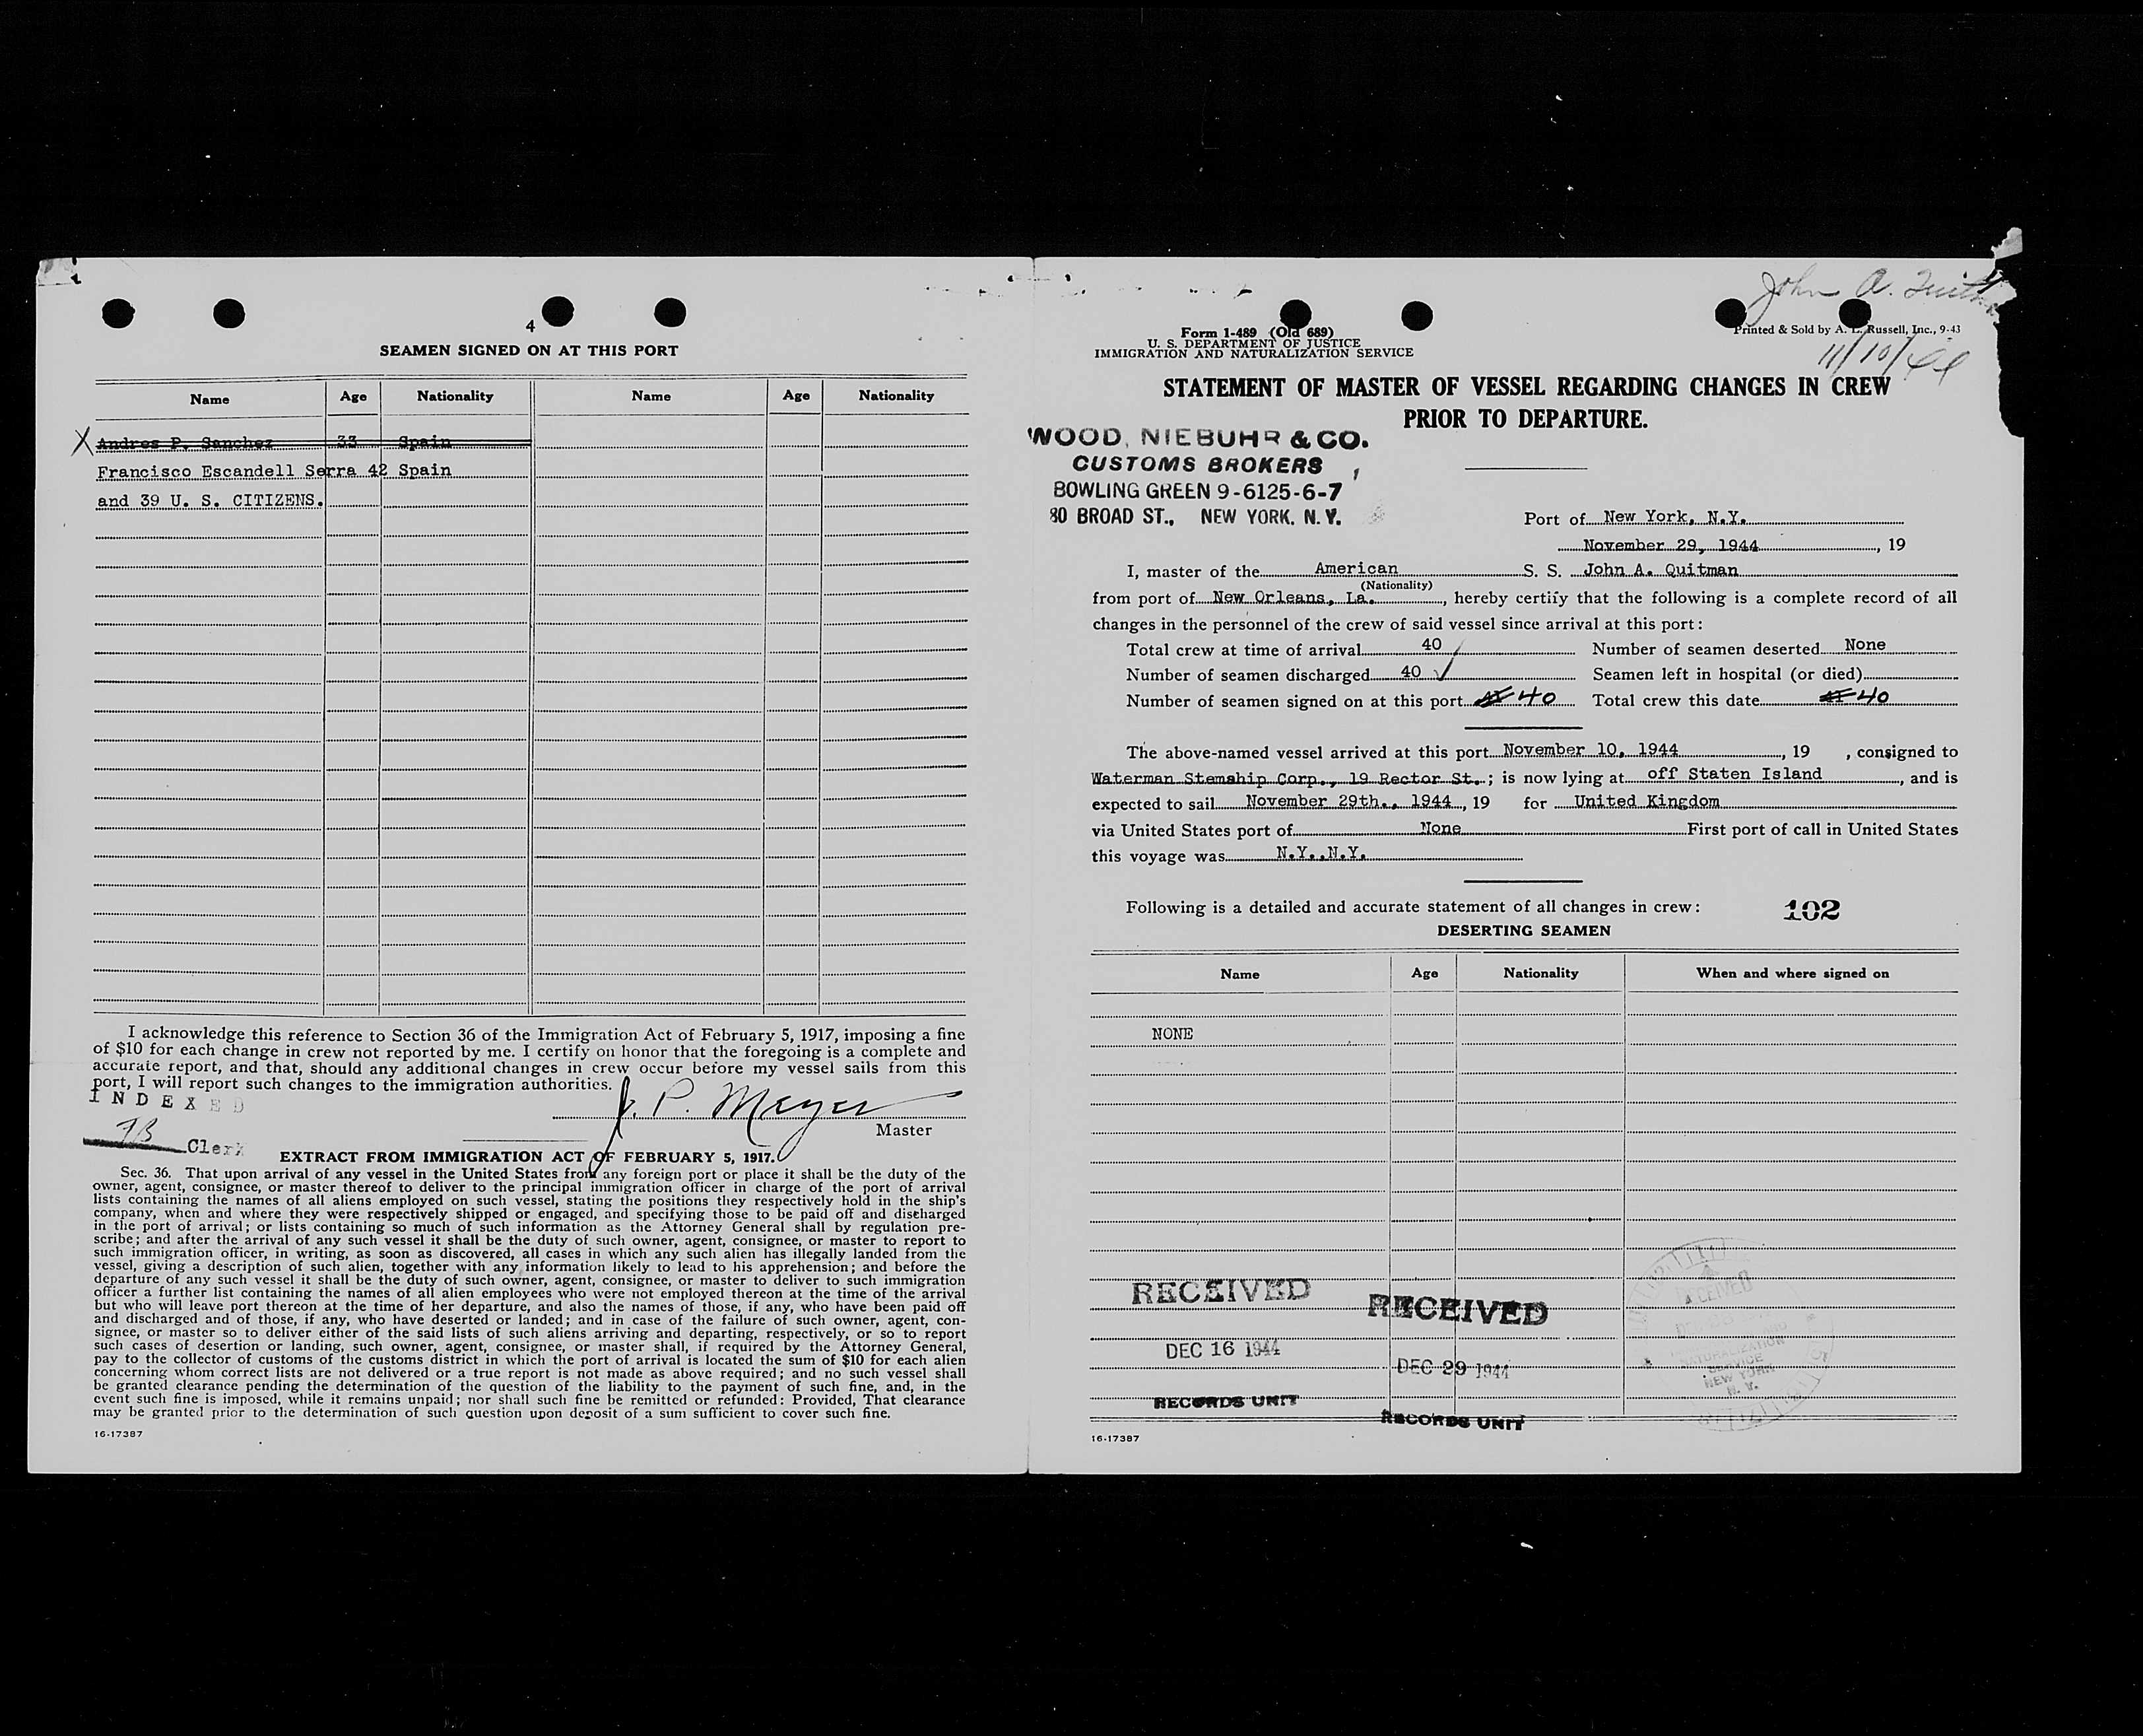 4
SEAMEN SIGNED ON AT THIS PORT
Name Age Nationality Name Age Nationality
X Andres P. Sanchez 33 Spain
Francisco Escandell Serra 42 Spain
and 39 U. S. CITIZENS.
I acknowledge this reference to Section 36 of the Immigration Act of February 5, 1917, imposing a fine
of $10 for each change in crew not reported by me. I certify on honor that the foregoing is a complete and
accurate report, and that, should any additional changes in crew occur before my vessel sails from this
port, I will report such changes to the immigration authorities.
INDEXED
J. P. Meyer
Master
Clerk
EXTRACT FROM IMMIGRATION ACT OF FEBRUARY 5, 1917.
Sec. 36. That upon arrival of any vessel in the United States from any foreign port or place it shall be the duty of the
owner, agent, consignee, or master thereof to deliver to the principal immigration officer in charge of the port of arrival
lists containing the names of all aliens employed on such vessel, stating the positions they respectively hold in the ship's
company, when and where they were respectively shipped or engaged, and specifying those to be paid off and discharged
in the port of arrival; or lists containing so much of such information as the Attorney General shall by regulation pre-
scribe; and after the arrival of any such vessel it shall be the duty of such owner, agent, consignee, or master to report to
such immigration officer, in writing, as soon as discovered, all cases in which any such alien has illegally landed from the
vessel, giving a description of such alien, together with any information likely to lead to his apprehension; and before the
departure of any such vessel it shall be the duty of such owner, agent, consignee, or master to deliver to such immigration
officer a further list containing the names of all alien employees who were not employed thereon at the time of the arrival
but who will leave port thereon at the time of her departure, and also the names of those, if any, who have been paid off
and discharged and of those, if any, who have deserted or landed; and in case of the failure of such owner, agent, con-
signee, or master so to deliver either of the said lists of such aliens arriving and departing, respectively, or so to report
such cases of desertion or landing, such owner, agent, consignee, or master shall, if required by the Attorney General,
pay to the collector of customs of the customs district in which the port of arrival is located the sum of $10 for each alien
concerning whom correct lists are not delivered or a true report is not made as above required; and no such vessel shall
be granted clearance pending the determination of the question of the liability to the payment of such fine, and, in the
event such fine is imposed, while it remains unpaid; nor shall such fine be remitted or refunded: Provided, That clearance
may be granted prior to the determination of such question upon deposit of a sum sufficient to cover such fine.
16-17387
John A.
Form 1-489 (Old 689)
U. S. DEPARTMENT OF JUSTICE
IMMIGRATION AND NATURALIZATION SERVICE
Printed & Sold by A. L. Russell, Inc., 9-43
11/10/44
STATEMENT OF MASTER OF VESSEL REGARDING CHANGES IN CREW
PRIOR TO DEPARTURE.
WOOD, NIEBUHR & CO.
CUSTOMS BROKERS
BOWLING GREEN 9-6125-6-7
80 BROAD ST., NEW YORK, N. Y.
Port of New York, N.Y.
November 29, 1944, 19
I, master of the American S. S. John A. Quitman
(Nationality)
from port of New Orleans, La., hereby certify that the following is a complete record of all
changes in the personnel of the crew of said vessel since arrival at this port:
Total crew at time of arrival 40 Number of seamen deserted None
Number of seamen discharged 40 ✓ Seamen left in hospital (or died)
Number of seamen signed on at this port 40 Total crew this date 40
The above-named vessel arrived at this port November 10, 1944, 19 , consigned to
Waterman Stemship Corp., 19 Rector St.; is now lying at off Staten Island, and is
expected to sail November 29th., 1944, 19 for United Kingdom
via United States port of None First port of call in United States
this voyage was N.Y.,N.Y.
Following is a detailed and accurate statement of all changes in crew: 102
DESERTING SEAMEN
Name Age Nationality When and where signed on
NONE
RECEIVED
DEC 16 1944
RECORDS UNIT
RECEIVED
DEC 29 1944
RECORDS UNIT
NATURALIZATION
SERVICE
NEW YORK
N. Y.
16-17387